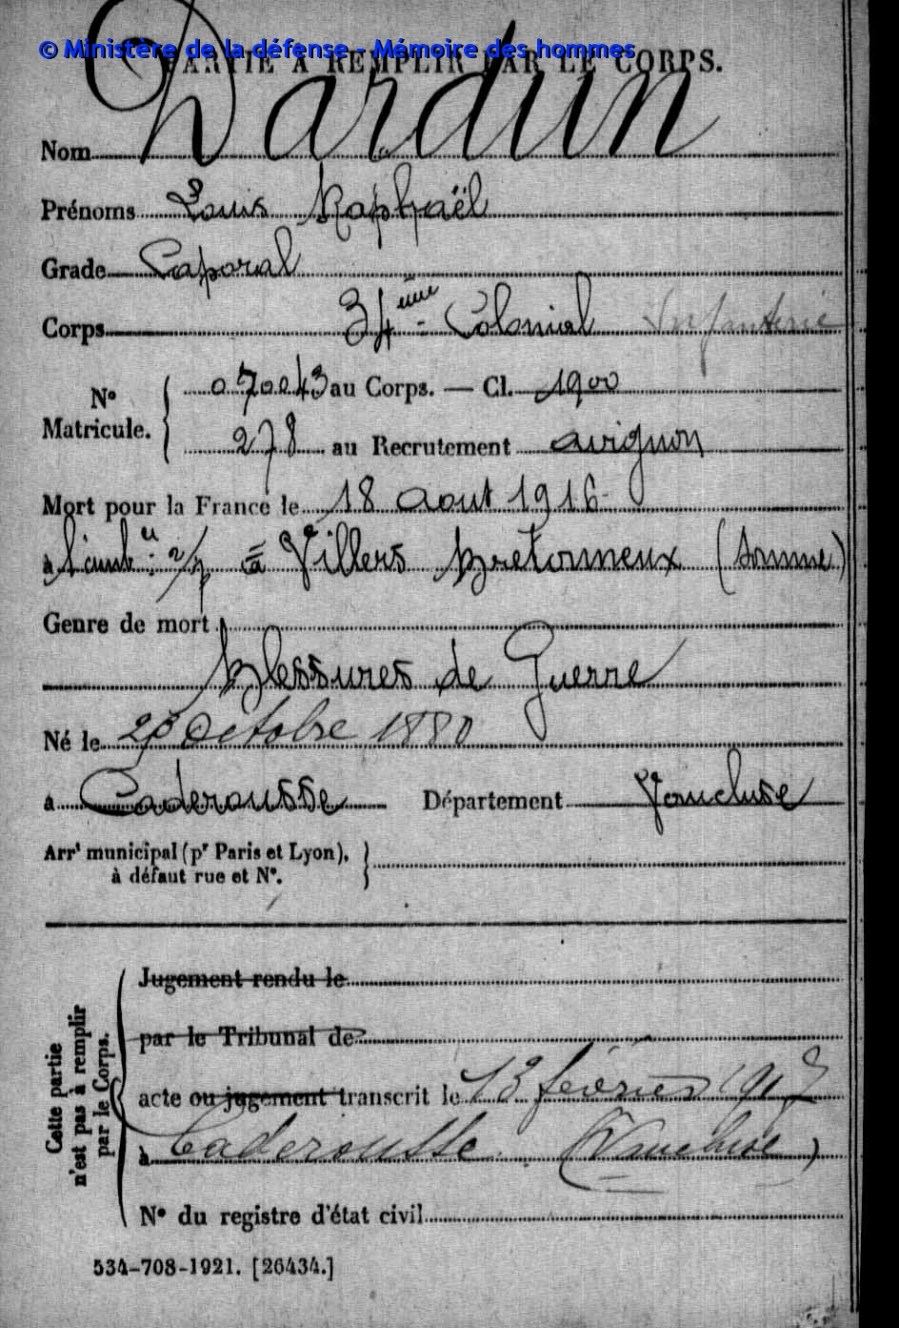 © Ministère de la défense - Mémoire des hommes
PARTIE À REMPLIR PAR LE CORPS.
Nom Dardun
Prénoms Louis Raphaël
Grade Caporal
Corps 34ème Colonial Infanterie
N° Matricule. 07043 au Corps. — Cl. 1900
278 au Recrutement avignon
Mort pour la France le 18 aout 1916
à l'amb: 2/7 à Villers Bretonneux (Somme)
Genre de mort
Blessures de Guerre
Né le Octobre 1880
à Caderousse Département Vaucluse
Arrt municipal (pr Paris et Lyon),
à défaut rue et N°.
Cette partie n'est pas à remplir par le Corps.
Jugement rendu le
par le Tribunal de
acte ou jugement transcrit le 13 février 1917
à Caderousse (Vaucluse)
N° du registre d'état civil
534-708-1921. [26434.]